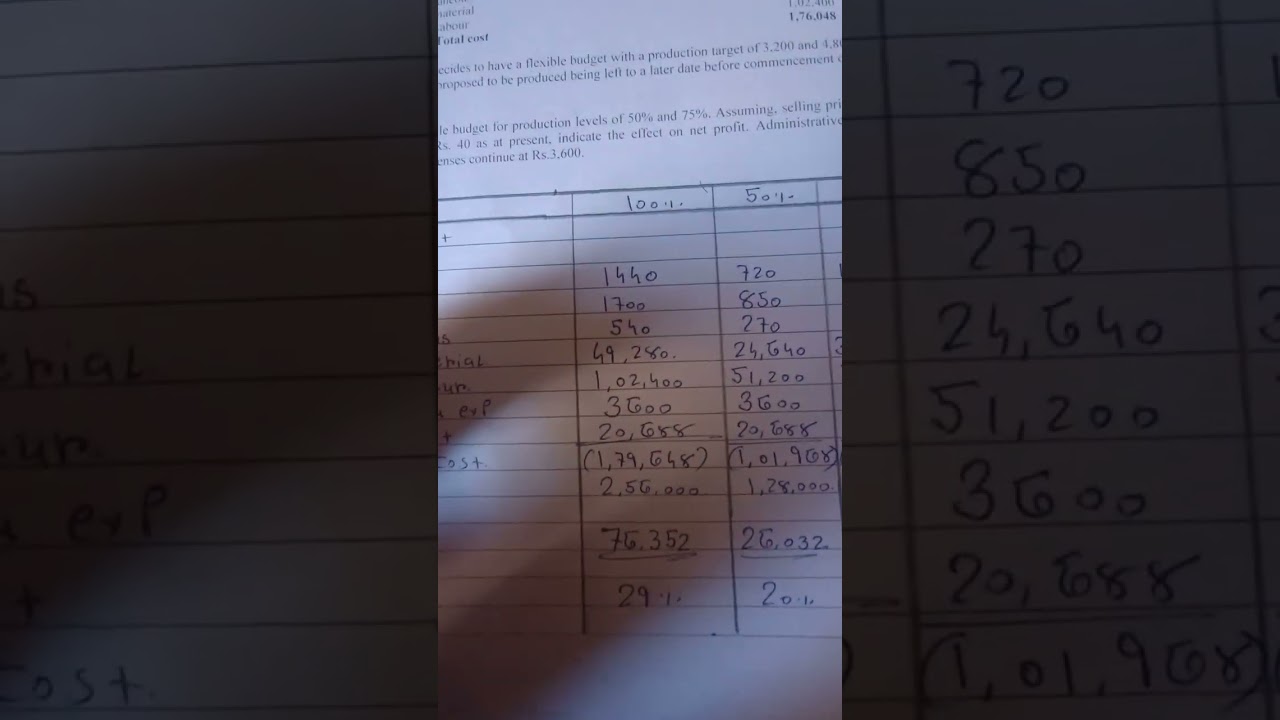 material
1,02,400
labour
1,76,048
Total cost
ecides to have a flexible budget with a production target of 3,200 and 4,8
proposed to be produced being left to a later date before commencement
le budget for production levels of 50% and 75%. Assuming, selling pri
Rs. 40 as at present, indicate the effect on net profit. Administrative
enses continue at Rs.3,600.
100% 50%
+
1440 720
1700 850
s 540 270
erial 49,280. 24,640
ur. 1,02,400 51,200
exp 3600 3600
+ 20,688 20,688
Cost. (1,79,648) (1,01,968)
2,56,000. 1,28,000.
76,352 26,032
29% 20%
720
850
270
24,640
51,200
3600
20,688
(1,01,968)
us
erial
ur.
exp
+
Cost.